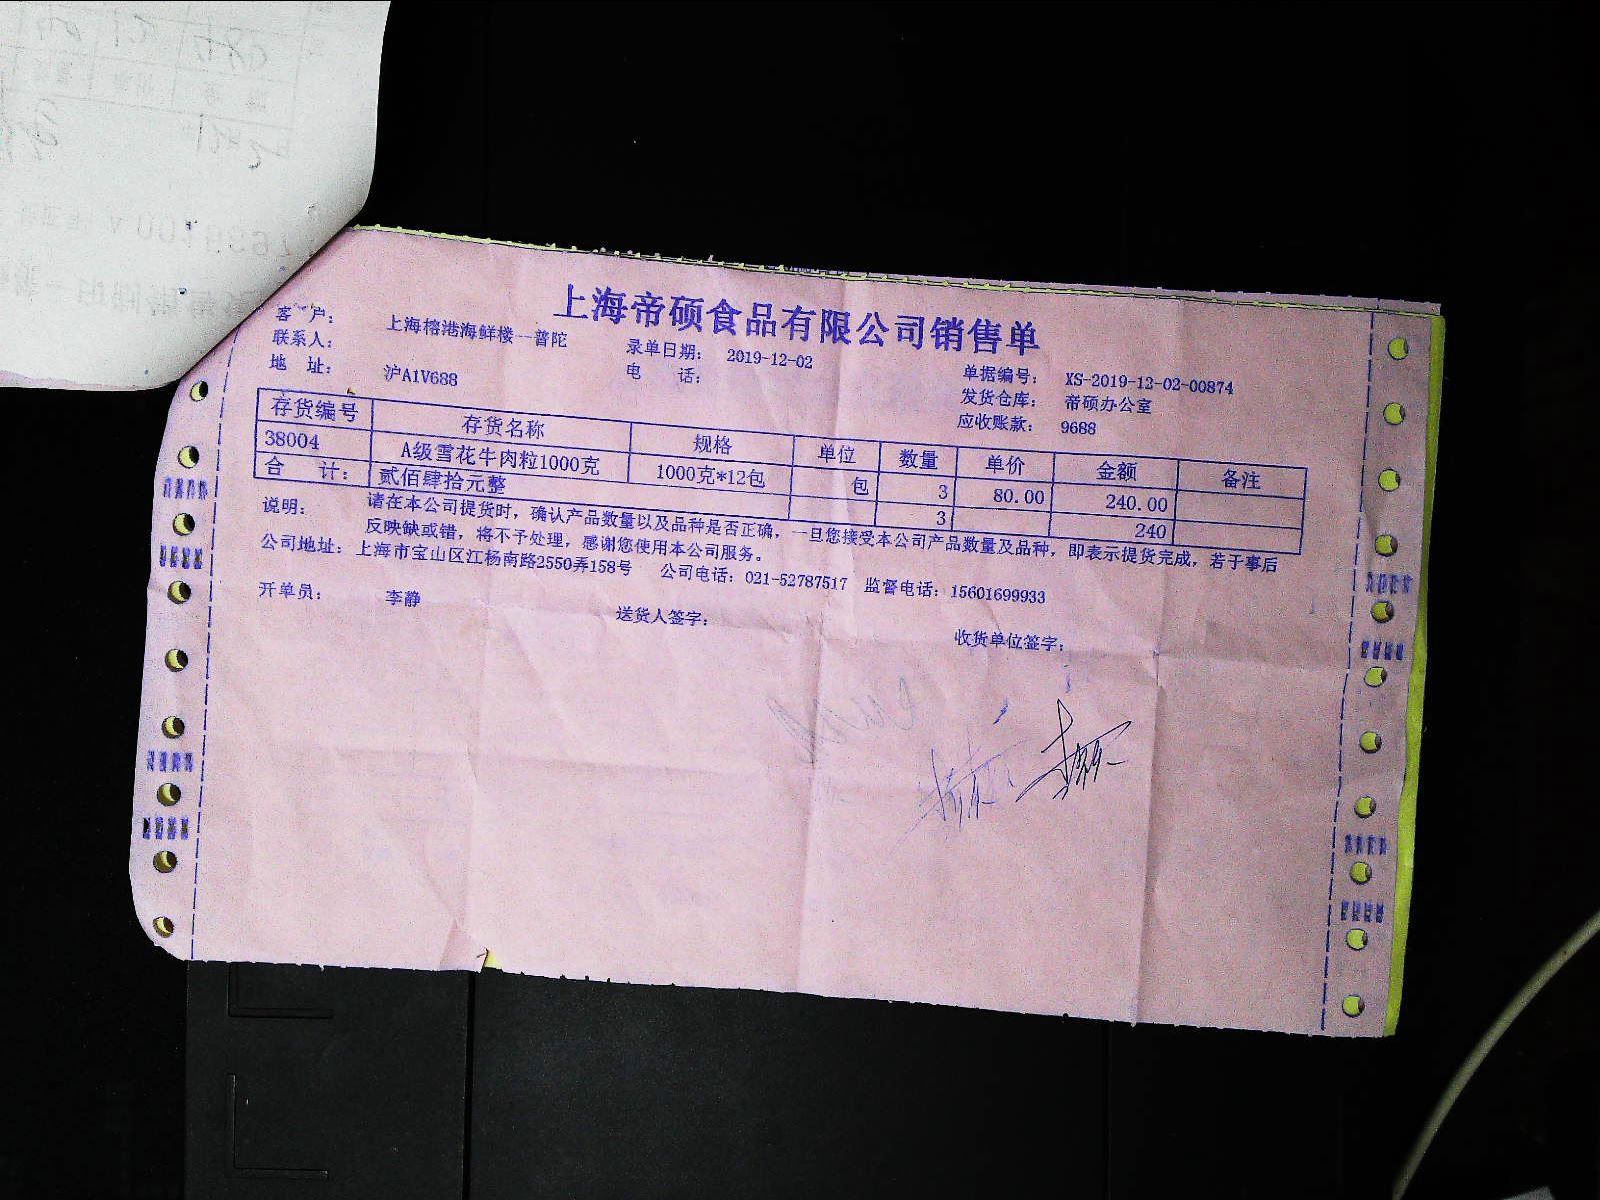 上海帝硕食品有限公司销售单
客 户： 上海榕港海鲜楼--普陀 录单日期： 2019-12-02 单据编号： XS-2019-12-02-00874
联系人： 电 话： 发货仓库： 帝硕办公室
地 址： 沪A1V688 应收账款： 9688
存货编号 存货名称 规格 单位 数量 单价 金额 备注
38004 A级雪花牛肉粒1000克 1000克*12包 包 3 80.00 240.00
合 计： 贰佰肆拾元整 3 240
说明： 请在本公司提货时，确认产品数量以及品种是否正确，一旦您接受本公司产品数量及品种，即表示提货完成，若于事后
反映缺或错，将不予处理，感谢您使用本公司服务。
公司地址：上海市宝山区江杨南路2550弄158号 公司电话：021-52787517 监督电话：15601699933
开单员： 李静 送货人签字： 收货单位签字：